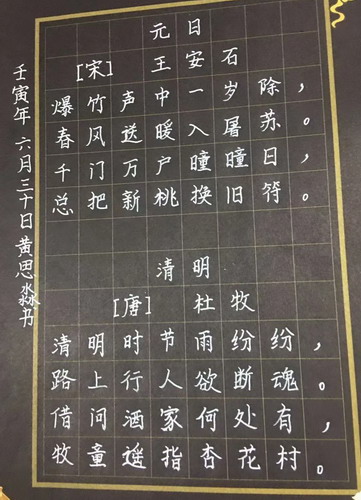 元日
[宋] 王安石
爆竹声中一岁除，
春风送暖入屠苏。
千门万户曈曈日，
总把新桃换旧符。
清明
[唐] 杜牧
清明时节雨纷纷，
路上行人欲断魂。
借问酒家何处有，
牧童遥指杏花村。
壬寅年 六月三十日黄思淼书